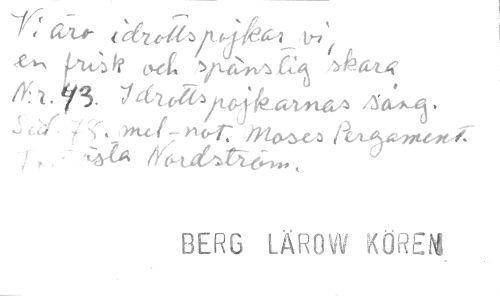 Vi äro idrottspojkar vi,
en frisk och spänstig skara
N:r. 43. Idrottspojkarnas sång.
Sid. 78. mel-not. Moses Pergament.
Nordström.
BERG LÄROW KÖREN